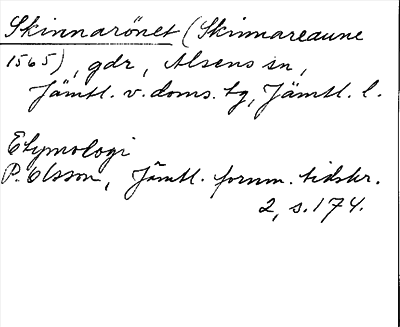 Skinnarönet (Skinnareaune
1565), gdr, Alsens sn,
Jämtl. v. doms. tg, Jämtl. l.
Etymologi
P. Olsson, Jämtl. fornm. tidskr.
2, s. 174.